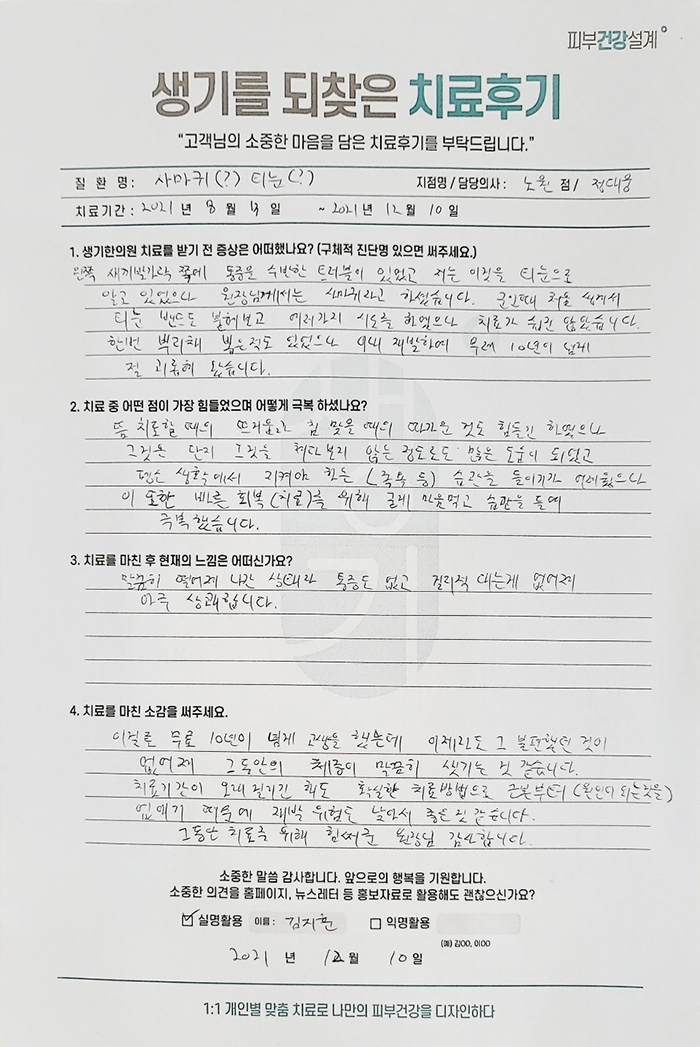 피부건강설계
생기를 되찾은 치료후기
“고객님의 소중한 마음을 담은 치료후기를 부탁드립니다.”
질 환 명 : 사마귀(?) 티눈(?) 지점명 / 담당의사 : 노원 점 / 정대웅
치료기간 : 2021 년 8 월 일 ~ 2021 년 12 월 10 일
1. 생기한의원 치료를 받기 전 증상은 어떠했나요? (구체적 진단명 있으면 써주세요.)
왼쪽 새끼발가락 쪽에 통증을 수반한 트러블이 있었고 저는 이것을 티눈으로
알고 있었으나 원장님께서는 사마귀라고 하셨습니다. 군인때 처음 생겨서
티눈 밴드도 붙여보고 여러가지 시도를 하였으나 치료가 쉽진 않았습니다.
한번 뿌리채 뽑은적도 있었으나 재발하여 무려 10년이 넘게
절 괴롭혀 왔습니다.
2. 치료 중 어떤 점이 가장 힘들었으며 어떻게 극복 하셨나요?
뜸 치료할 때의 뜨거움과 침 맞을 때의 따가운 것도 힘들긴 하였으나
그것은 단지 그것을 쳐다보지 않는 정도로도 많은 도움이 되었고
평소 생활에서 지켜야 하는 (족욕 등) 습관을 들이기가 어려웠으나
이 또한 빠른 회복(치료)를 위해 굳게 마음먹고 습관을 들여
극복했습니다.
3. 치료를 마친 후 현재의 느낌은 어떠신가요?
말끔히 떨어져 나간 상태라 통증도 없고 걸리적 대는게 없어져
아주 상쾌합니다.
4. 치료를 마친 소감을 써주세요.
이걸로 무려 10년이 넘게 고생을 했는데 이제라도 그 불편했던 것이
없어져 그동안의 체증이 말끔히 씻기는 것 같습니다.
치료기간이 오래 걸리긴 해도 확실한 치료방법으로 근본부터 (원인이 되는것을)
없애기 때문에 재발 위험도 낮아서 좋은 것 같습니다.
그동안 치료를 위해 힘써준 원장님 감사합니다.
소중한 말씀 감사합니다. 앞으로의 행복을 기원합니다.
소중한 의견을 홈페이지, 뉴스레터 등 홍보자료로 활용해도 괜찮으신가요?
실명활용 이름 : 김지훈 익명활용
(예) 김OO, 이OO
2021 년 12 월 10 일
1:1 개인별 맞춤 치료로 나만의 피부건강을 디자인하다